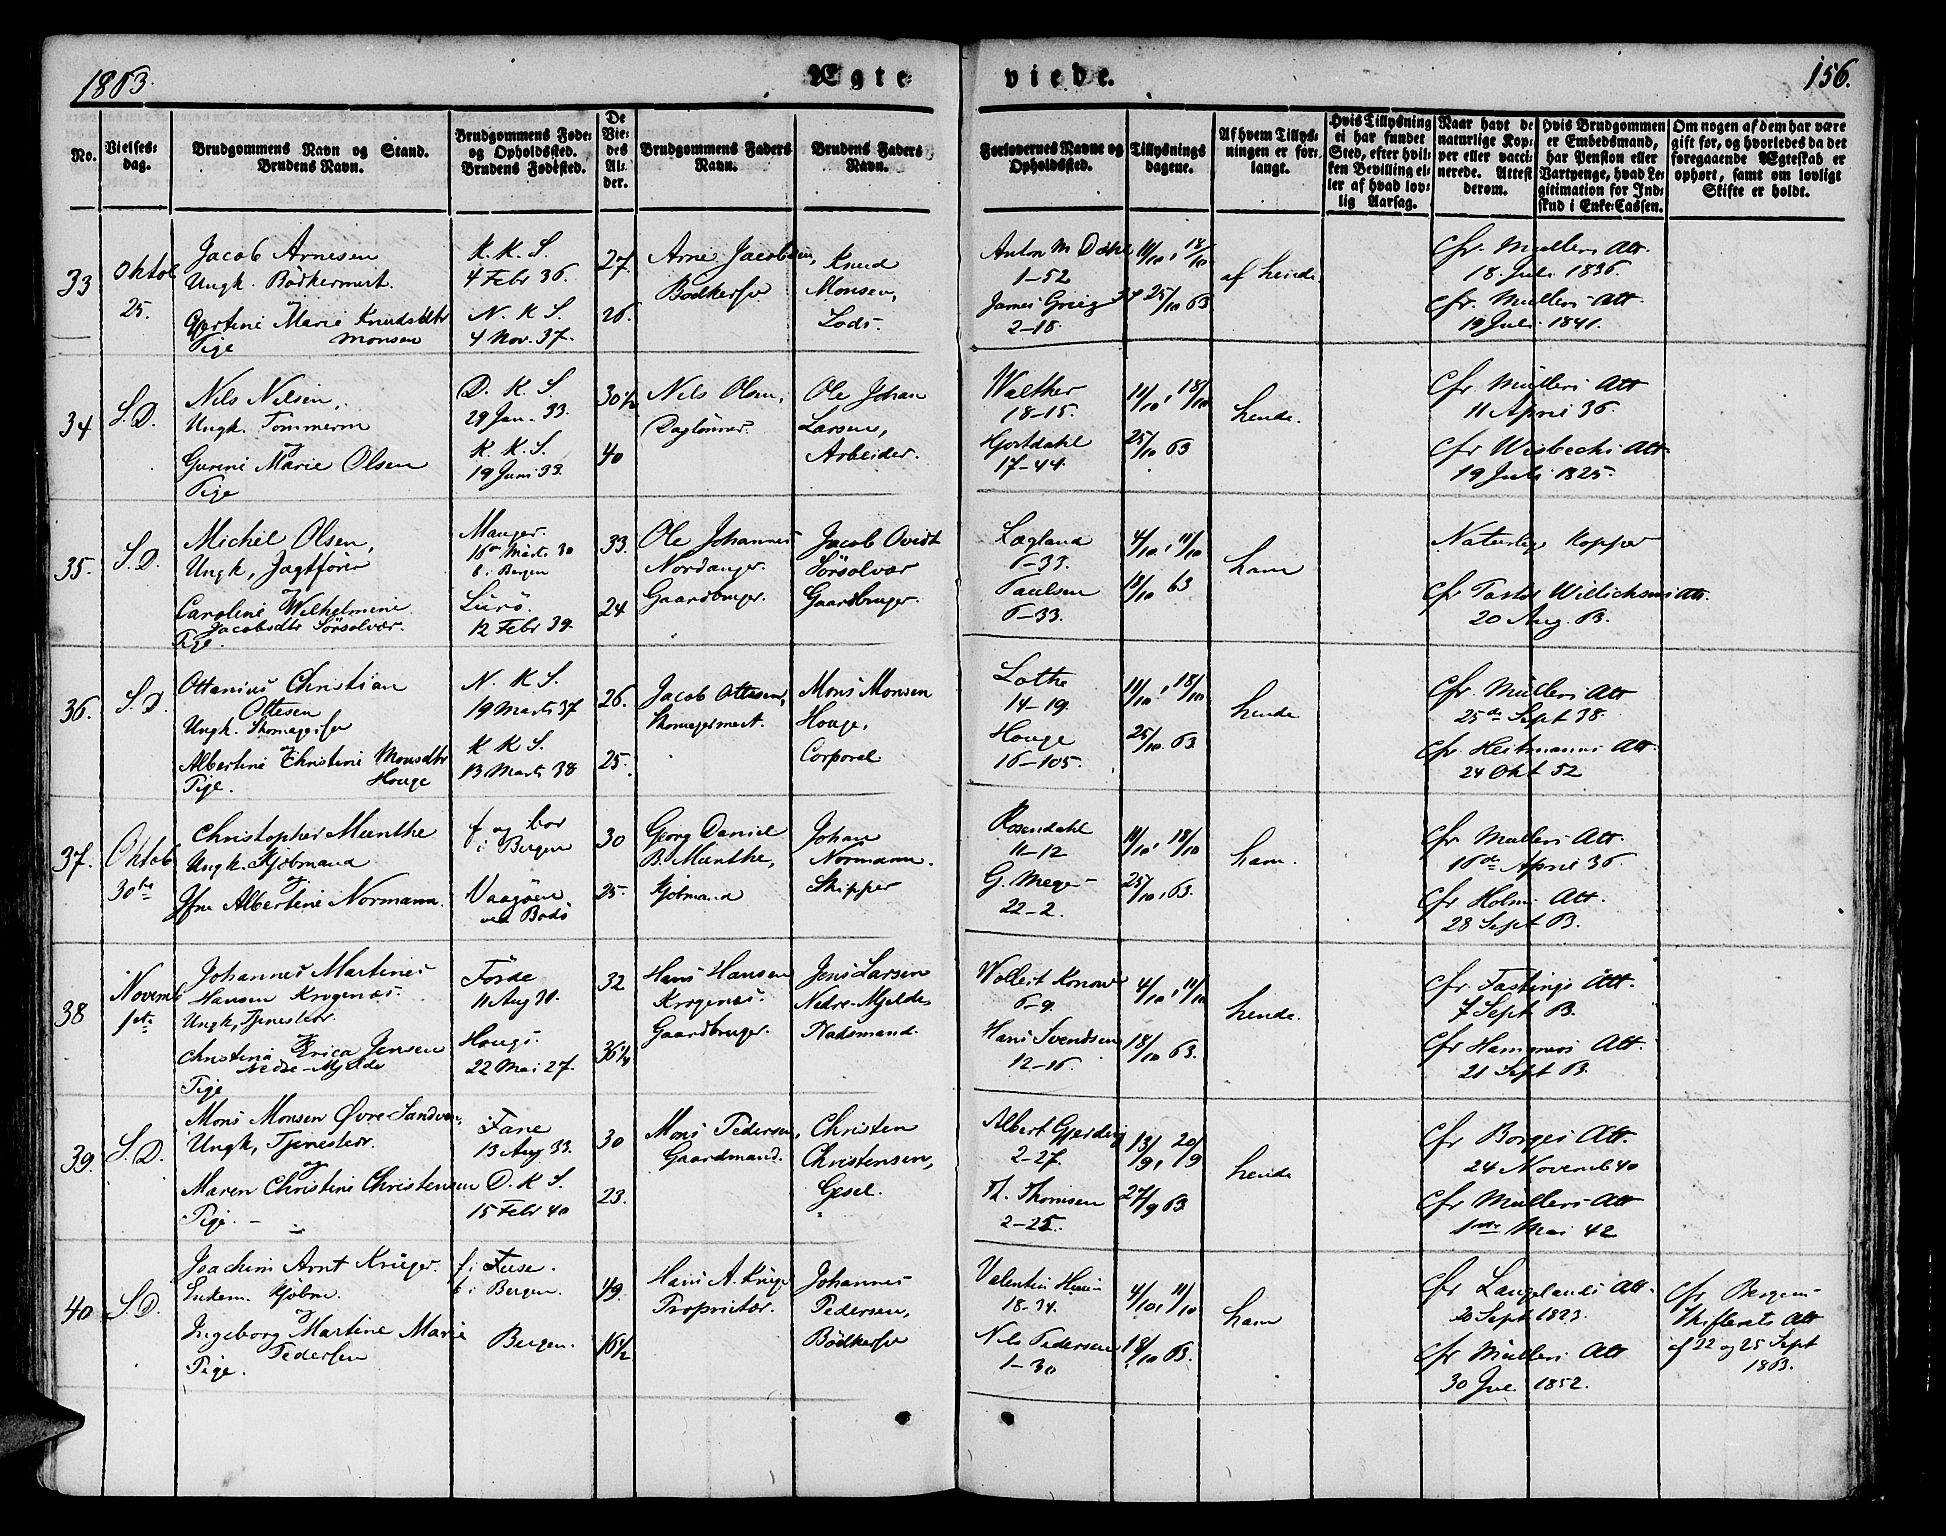 1863.
Ægte
viede.
156.
No.
Vielses-
dag.
Brudgommens Navn og Stand.
Brudens Navn.
Brudgommens Føde-
og Opholdssted.
Brudens Fødested.
De
Vie-
des
Al-
der.
Brudgommens Faders
Navn.
Brudens Faders
Navn.
Forlovernes Navne og
Opholdssted.
Tillysnings
dagene.
Af hvem Tillys-
ningen er for-
langt.
Hvis Tillysning
ei har fundet
Sted, efter hvil-
ken Bevilling el-
ler af hvad lov-
lig Aarsag.
Naar havt de
naturlige Kop-
per eller vacci-
nerede. Attest
derom.
Hvis Brudgommen
er Embedsmand,
har Pension eller
Vartpenge, hvad Le-
gitimation for Ind-
skud i Enke-Cassen.
Om nogen af dem har være
gift før, og hvorledes da det
foregaaende Ægteskab er
ophørt, samt om lovligt
Skifte er holdt.
33
Oktob
25.
Jacob Arnesen
Ungk. Bödkermest.
Gjertine Marie Knudsdtr
Pige Monsen
K. K. S.
4 Febr 36.
N. K. S.
4 Nov. 37.
27.
26.
Arne Jacobsen,
Bödkersv
Knud
Monsen,
Lods.
Anton M Dahl
1-52
James Grieg
2-18.
11/10, 18/10
25/10 63
af hende.
Cfr. Mullers Att
18. Juli 1836.
Cfr. Mullers Att
19 Juli 1841.
34
S. D.
Nils Nilsen,
Ungk. Tömmerm
og
Gurine Marie Olsen
Pige
D. K. S.
29 Jan. 33.
K. K. S.
19 Juni 23.
30 1/2
40
Nils Olsen,
Daglönner.
Ole Johan
Larsen,
Arbeider.
Walther
18-15.
Hjortdahl
17-44.
11/10, 18/10
25/10 63
hende.
Cfr Müllers Att
11 April 36.
Cfr Wisbechs Att.
19 Juli 1825.
35.
S. D.
Michel Olsen,
Ungk, Jagtförer
og
Caroline Wilhelmine
Jacobsdtr Sörsolvær.
Pige.
Manger.
16de Marts 30
b. i Bergen
Lurö.
12 Febr 39.
33.
24
Ole Johannes
Nordanger.
Gaardbruger.
Jacob Qvidt
Sörsolvær
Gaardbruger.
Lægland
6-33.
Paulsen
6-33.
4/10, 11/10
18/10 63
ham
Naturlige Kopper
Cfr Pastor Willichsens Att.
20 Aug. 63.
36.
S. D.
Ottanius Christian
Ottesen
Ungk. Skomagersv
og
Albertine Christine Monsdtr
Pige. Houge
N. K S.
19 Marts 37
K K S.
13 Marts 38
26.
25.
Jacob Ottesen,
Skomagermest.
Mons Monsen
Houge,
Corporal
Lothe
14-19.
Houge
16-105.
11/10, 18/10
25/10. 63.
hende
Cfr. Müllers Att
25de Sept 38.
Cfr. Heitmanns Att.
24 Okt 52
37.
Oktob
30te
Christopher Münthe
Ungk. Kjöbmand
og
Jfru Albertine Normann.
f og bor
i Bergen
Vaagöen
ved Bodö
30
25.
Georg Daniel
B. Münthe,
Kjöbmand
Johan
Normann.
Skipper
Rosendahl
11-12
G. Meyer
22-2.
11/10, 18/10
25/10, 63.
ham.
Cfr Mullers Att.
16de April 36
Cfr Holms Att.
28 Sept 63.
38
Novemb
1ste
Johannes Martines
Hansen Krogenæs.
Ungk, Tjenestekr.
og
Christina Erica Jensen
Nedre-Mjelde
Pige
Förde
11 Aug 31.
Hougs.
22 Mai 27.
32
36 1/4
Hans Hansen
Krogenæs.
Gaardbruger.
Jens Larsen
Nedre-Mjelde
Pladsmand.
Wollert Konow
6-9.
Hans Svendsen
12-16.
4/10, 11/10
18/10 63.
hende.
Cfr. Fastings Att.
7 Sept 63.
Cfr Hammers Att.
21 Sept 63.
39.
S. D.
Mons Monsen Övre-Sandven,
Ungk, Tjenestekr.
og
Maren Christine Christensen
Pige. -
Fane
13 Aug 33.
D. K S.
15 Febr 40
30
23.
Mons Pedersen,
Gaardmand.
Christen
Christensen,
Gesel.
Albert Gjerding
2-27.
Th. Thomsen
2-25.
13/9, 20/9
27/9 63.
hende
Cfr Borges Att.
24 Novemb 40
Cfr Mullers Att
1ste Mai 42
40
S. D.
Joachim Arnt Krüger.
Enkem. Kjöbm.
og
Ingeborg Martine Marie
Pedersen
Pige.
f. i Fuse.
b. i Bergen.
Bergen.
49.
16 1/2
Hans A. Krüger
Proprietær.
Johannes
Pedersen,
Bödkersv
Valentin
18-34.
Nils Pedersen
1-30
4/10, 11/10
18/10 63.
ham
Cfr Langelands Att.
20 Sept 1823.
Cfr Müllers Att
30 Jul 1852.
Cfr. Bergens
Skifterets Att
af 22 og 25 Sept
1863.